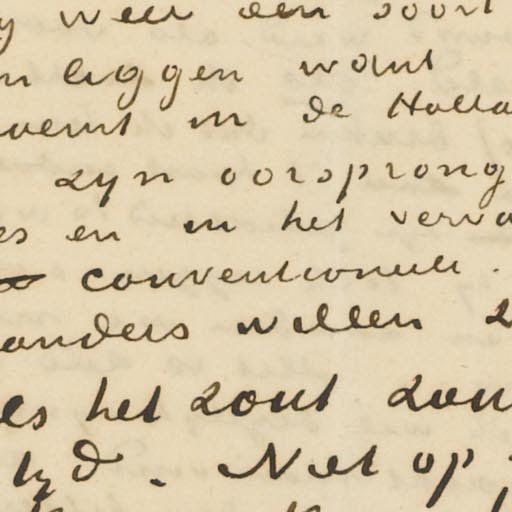 y weer een soort
n liggen want
oemt in de Holla
zyn oorsprong
es en in het verva
conventioneele.
anders willen z
es het zout zou
tyd. Niet op